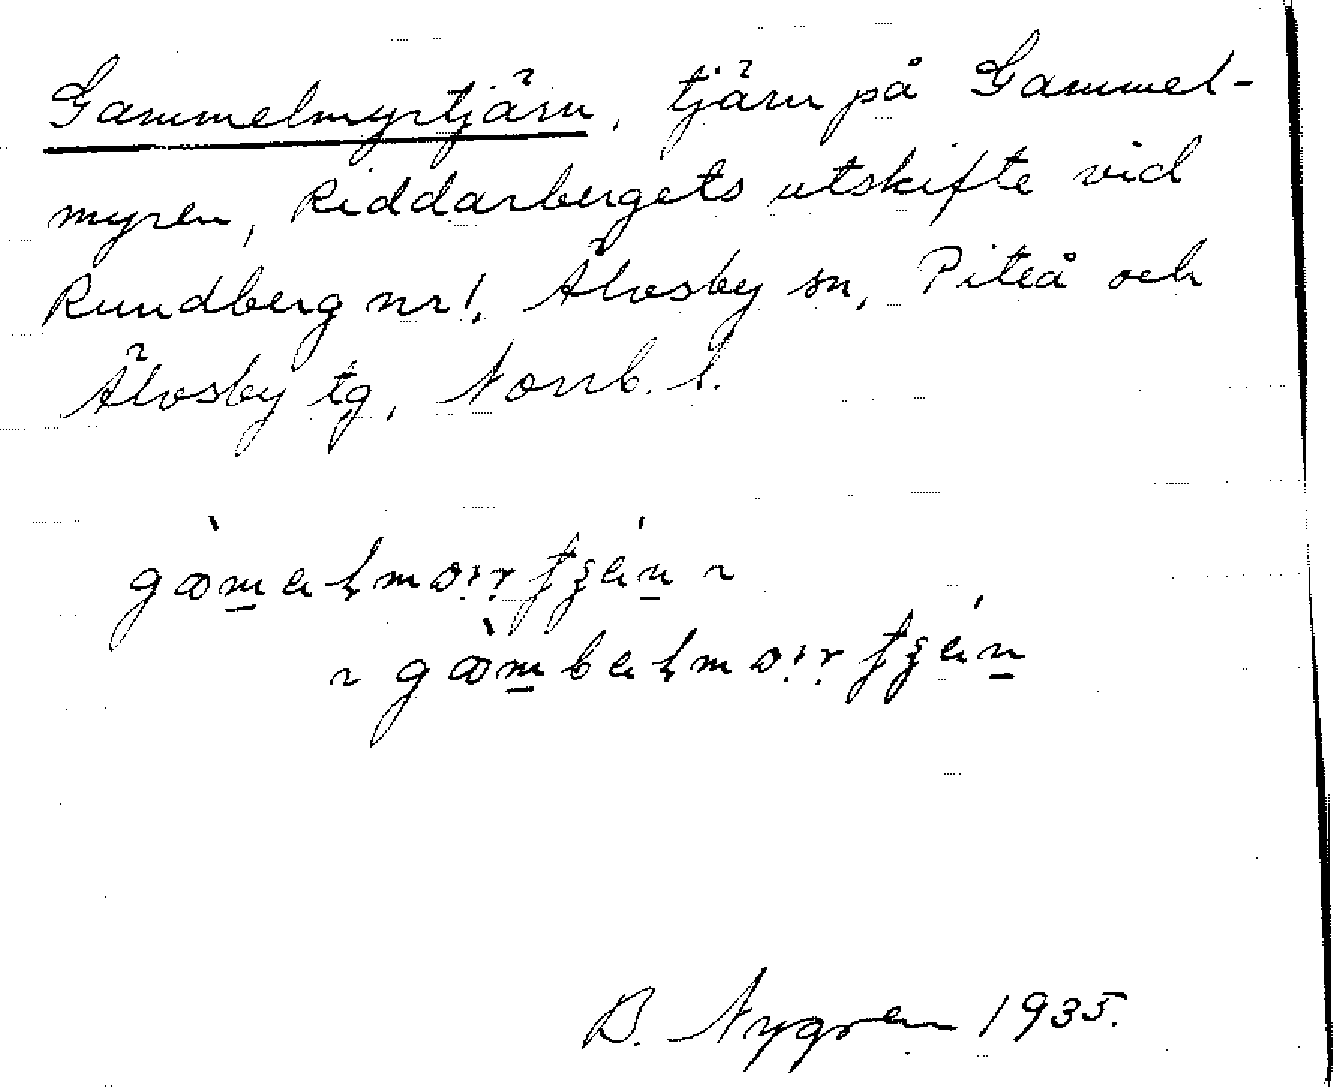 Gammelmyrtjärn, tjärn på Gammel-
myren, Riddarbergets utskifte vid
Rundberg nr 1, Älvsby sn, Piteå och
Älvsby tg, Norrb. l.
B. Nygren 1935.